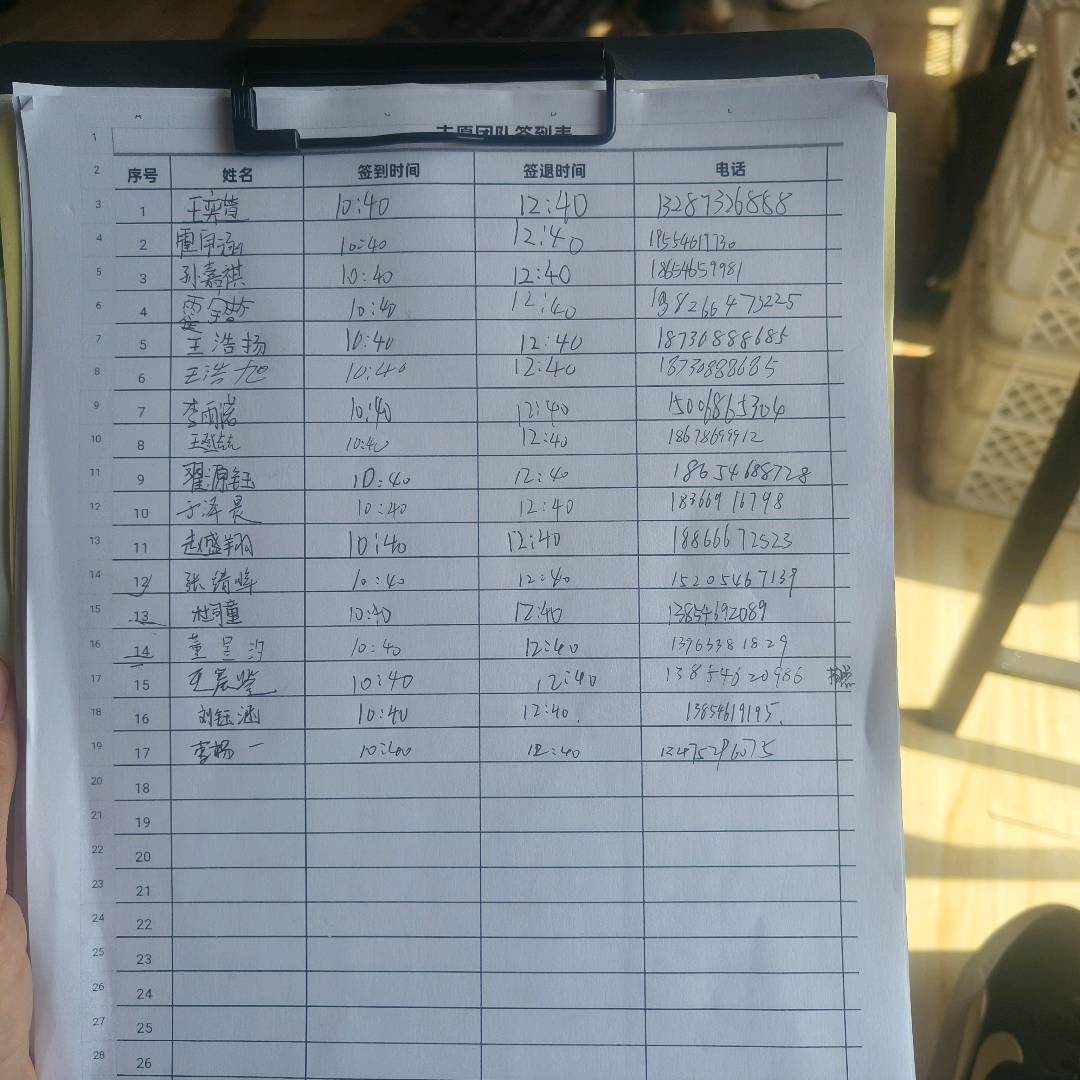 志愿团队签到表
序号 姓名 签到时间 签退时间 电话
1 王奕萱 10:40 12:40 13287326888
2 10:40 12:40 18554617730
3 孙嘉祺 10:40 12:40 18654659981
4 10:40 12:40
5 王浩扬 10:40 12:40 18730888685
6 王浩旭 10:40 12:40 18730888685
7 李雨诺 10:40 12:40 15006865304
8 10:40 12:40 18678699912
9 翟源钰 10:40 12:40 18654688728
10 于泽晨 10:40 12:40 18366916798
11 赵盛翔 10:40 12:40 18866672523
12 张绪晖 10:40 12:40 15205467139
13 杜雨童 10:40 12:40 13854692089
14 董星汐 10:40 12:40 13963381829
15 10:40 12:40 13854620986
16 刘钰涵 10:40 12:40. 13854619195.
17 李杨一 10:40 12:40
18
19
20
21
22
23
24
25
26